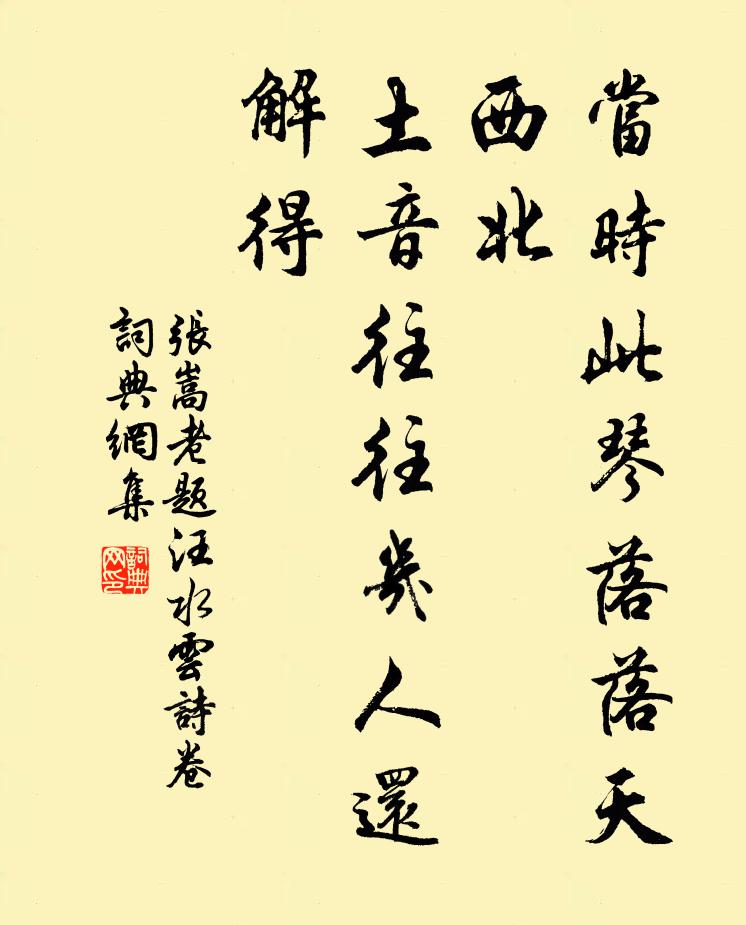 當時此琴落落天
西北
土音往往幾人還
解得
張嵩老題汪水雲詩卷
詞典網集
詞典网印